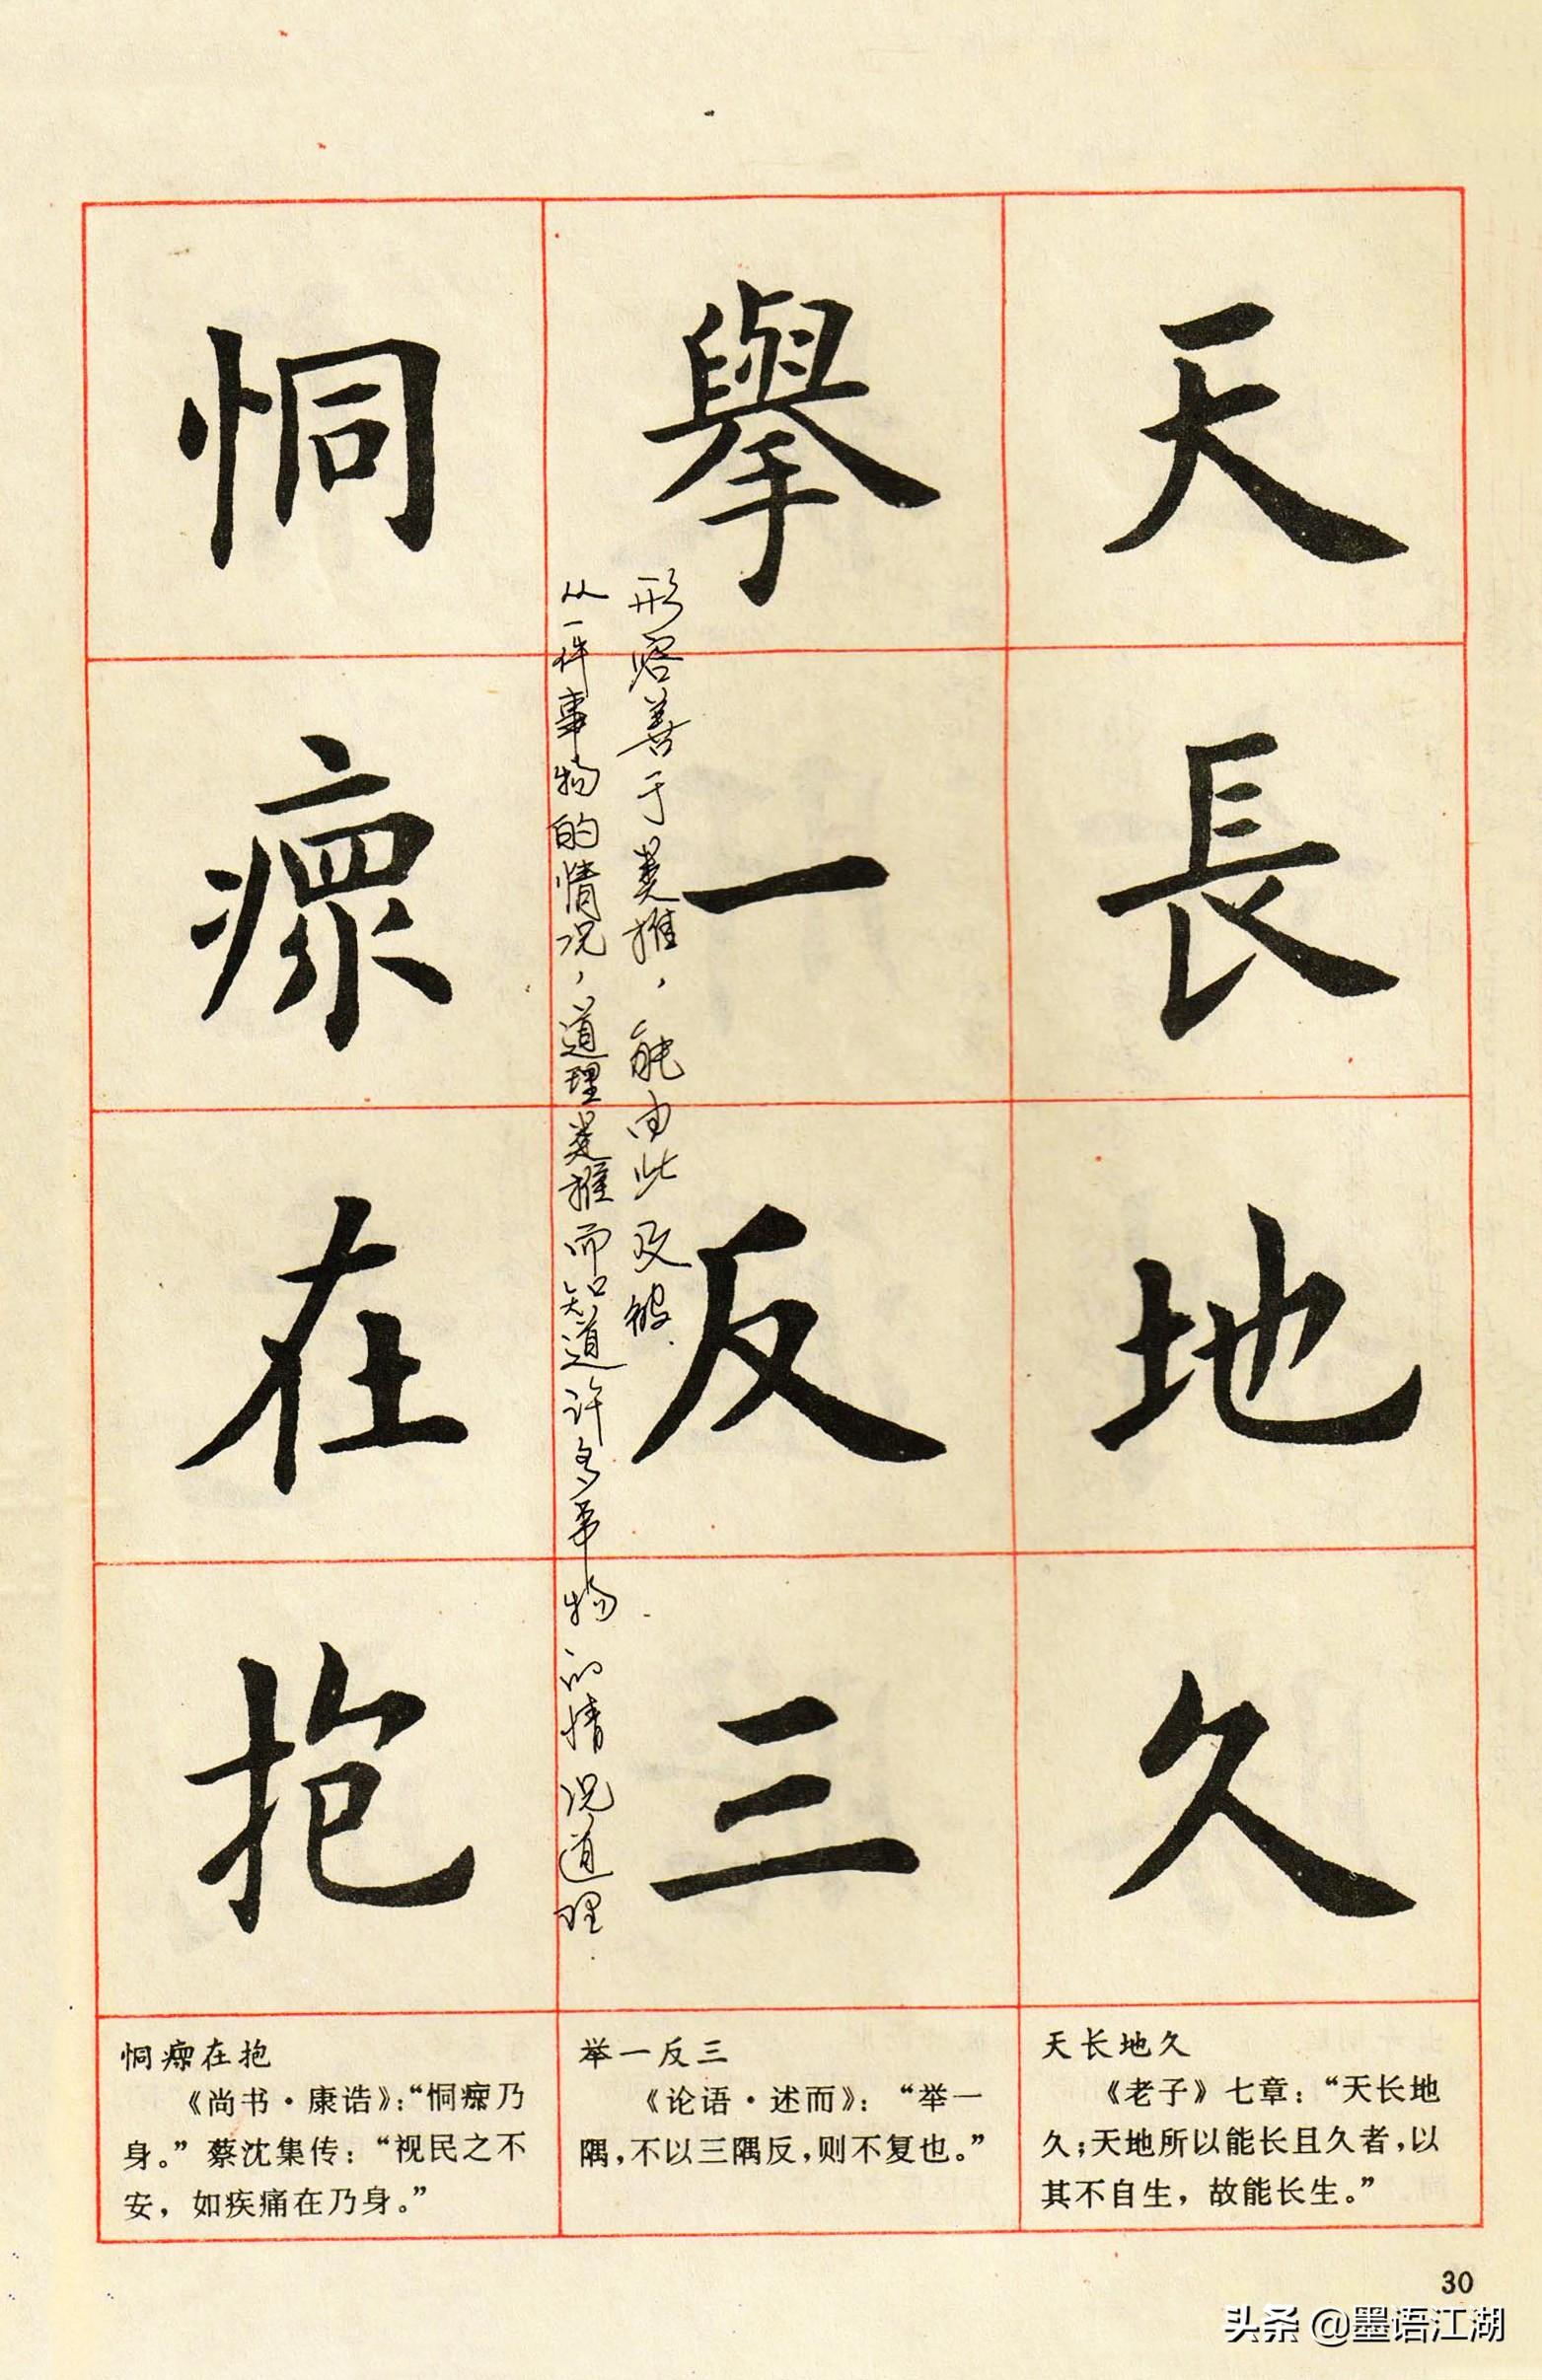 天長地久
舉一反三
形容善于类推，能由此及彼.
从一件事物的情况，道理类推而知道许多事物的情况道理.
恫瘝在抱
天长地久
《老子》七章：“天长地
久；天地所以能长且久者，以
其不自生，故能长生。”
举一反三
《论语·述而》：“举一
隅，不以三隅反，则不复也。”
恫瘝在抱
《尚书·康诰》：“恫瘝乃
身。”蔡沈集传：“视民之不
安，如疾痛在乃身。”
30
头条 @墨语江湖